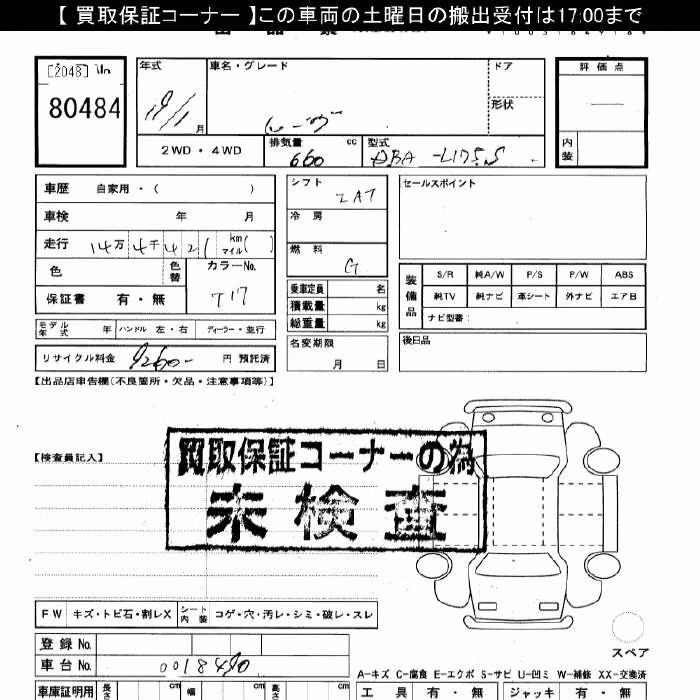 【 買取保証コーナー 】この車両の土曜日の搬出受付は17:00まで
[2048]
80484
年式
月
車名・グレード
ドア
形状
評価点
内装
2WD・4WD
排気量 660 cc
型式 DBA-L175S
車歴 自家用・( )
車検 年 月
走行 14万4千421 km マイル( )
色 色替
カラーNo. T17
保証書 有・無
シフト
冷房
燃料 G
乗車定員 名
積載量 kg
総重量 kg
名変期限 月 日
セールスポイント
装備品
S/R 純A/W P/S P/W ABS
純TV 純ナビ 革シート 外ナビ エアB
ナビ型番:
後日品
モデル年式 年 ハンドル 左・右 ディーラー・並行
リサイクル料金 9260- 円 預託済
【出品店申告欄(不良箇所・欠品・注意事項等)】
【検査員記入】
買取保証コーナーの為
未検査
FW キズ・トビ石・割レX シート内装 コゲ・穴・汚レ・シミ・破レ・スレ
登録 No.
車台 No. 0018490
車庫証明用 長さ cm 幅 cm 高さ cm
スペア
A-キズ C-腐食 E-エクボ S-サビ U-凹ミ W-補修 XX-交換済
工具 有・無 ジャッキ 有・無